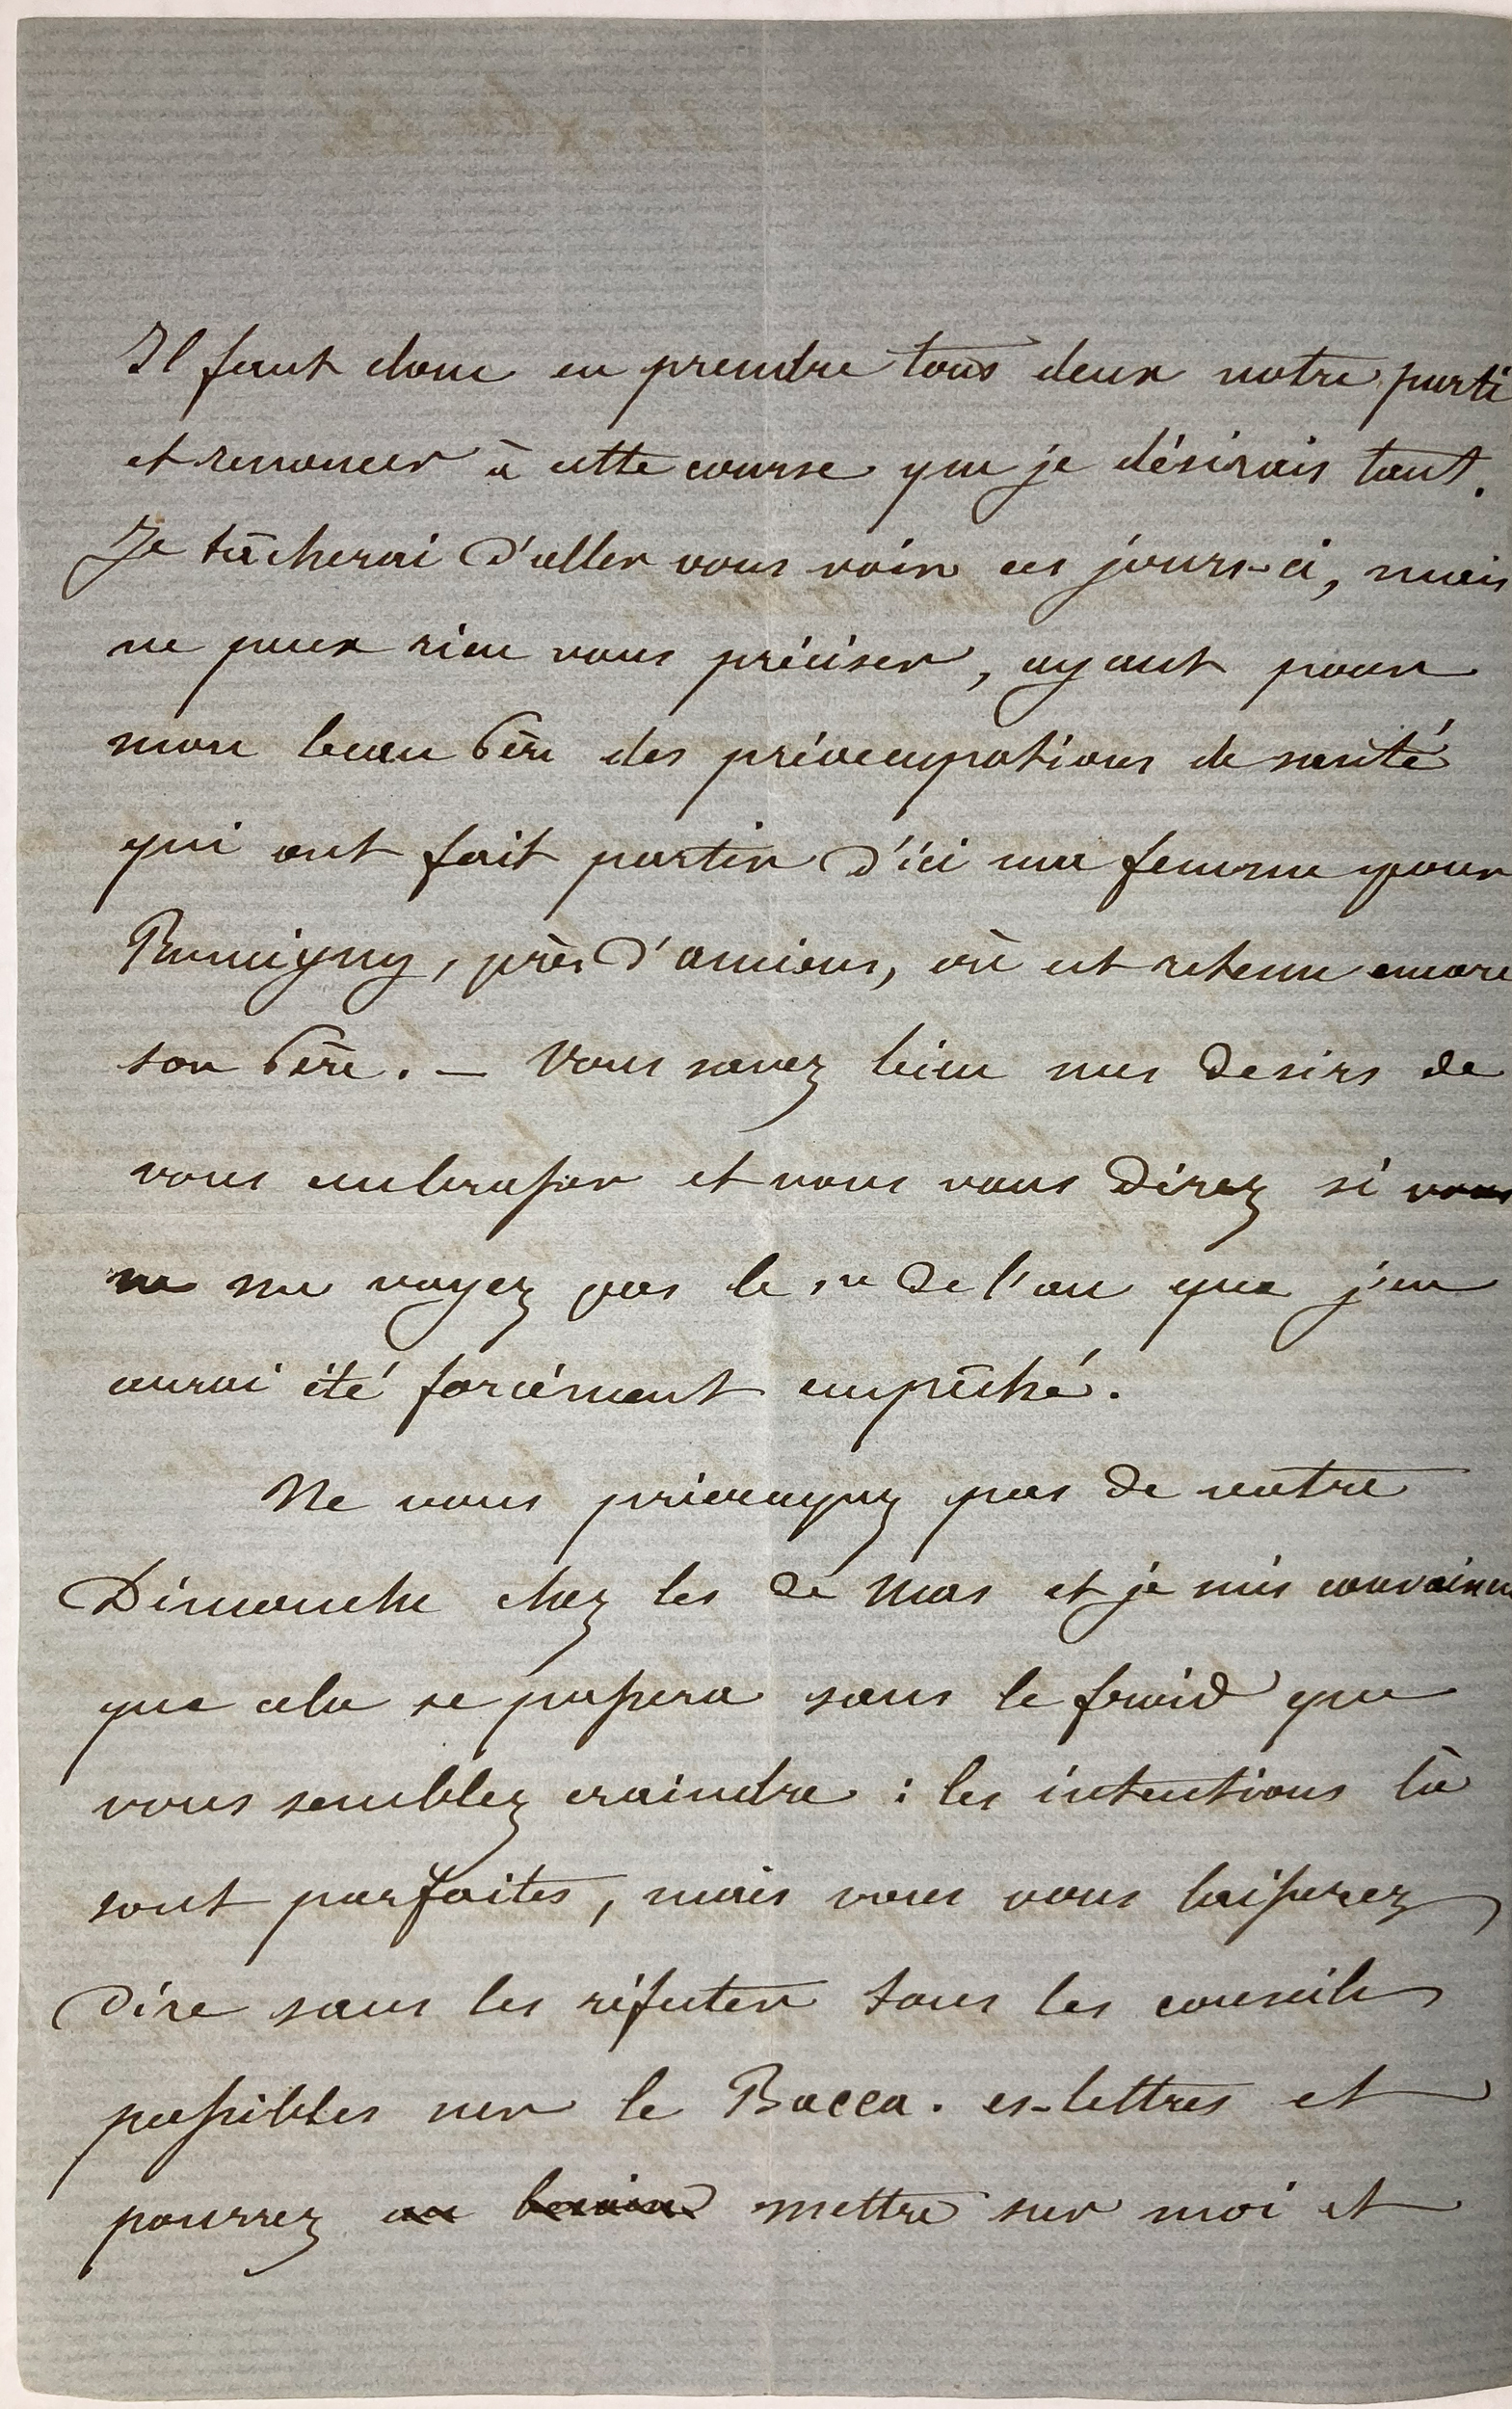 Il faut donc en prendre tous deux notre parti
et renoncer à cette course que je désirais tant.
Je tâcherai d'aller vous voir ces jours-ci, mais
ne peux rien vous préciser, ayant pour
mon beau Père des préoccupations de santé
qui ont fait partir d'ici ma femme pour
Rumigny, près d'amiens, où est retenu encore
son Père. — Vous savez bien mes desirs de
vous embrasser et vous vous direz si vous
ne me voyez pas le 1er de l'an que j'en
aurai été forcément empêché.
Ne vous préoccupez pas de votre
Dimanche chez les de Mas et je suis convaincu
que cela se passera sans le froid que
vous semblez craindre : les intentions là
sont parfaites, mais vous vous laisserez
dire sans les réfuter tous les conseils
possibles sur le Bacca. es-lettres et
pourrez au besoin mettre sur moi et